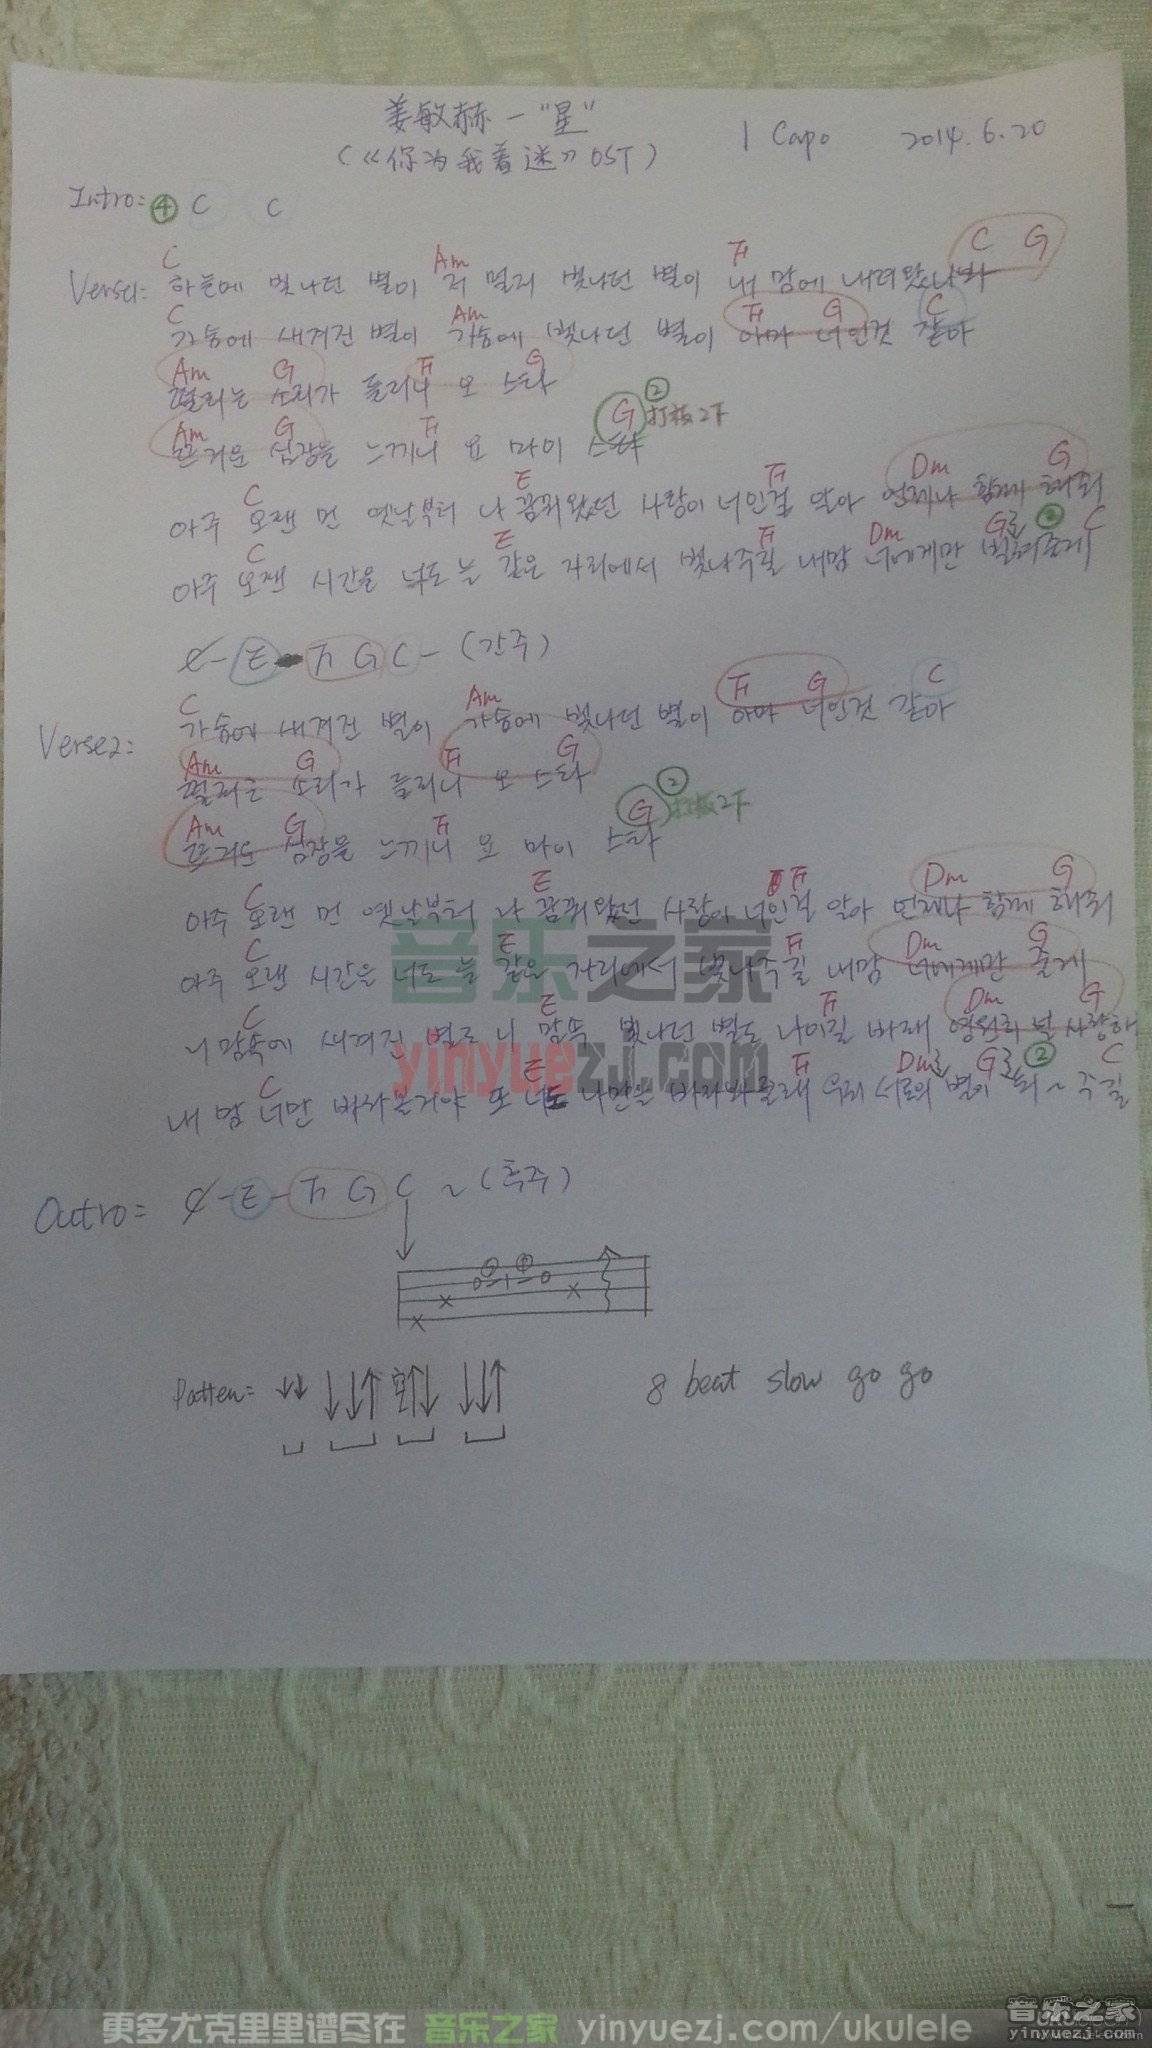 姜敏赫－"星"
(《你为我着迷》OST)
1 Capo 2014.6.20
Intro: ④ C C
C Am F C G
Verse1: 하늘에 빛나던 별이 저 멀리 빛나던 별이 내 맘에 내려왔나봐
C Am F G C
가슴에 새겨진 별이 가슴에 빛나던 별이 아마 너인것 같아
Am G F G
떨리는 소리가 들리니 오 스타
Am G F G ② 打板2下
뜨거운 심장을 느끼니 오 마이 스타
C E F Dm G
아주 오랜 먼 옛날부터 나 꿈꿔왔던 사랑이 너인걸 알아 언제나 함께 해줘
C E F Dm G로 ② C
아주 오랜 시간을 너도 늘 같은 자리에서 빛나주길 내맘 너에게만
C - E - F G C - (간주)
C Am F G C
Verse2: 가슴에 새겨진 별이 가슴에 빛나던 별이 아마 너인것 같아
Am G F G
떨리는 소리가 들리니 오 스타
Am G F G ② 打板2下
심장을 느끼니 오 마이 스타
C E F Dm G
아주 오랜 먼 옛날부터 나 꿈꿔왔던 사랑이 너인걸 알아 언제나 함께 해줘
C E F Dm G
아주 오랜 시간을 너도 늘 같은 자리에서 빛나주길 내맘 너에게만 줄게
C E F Dm G
니 맘속에 새겨진 별로 니 맘속 빛나던 별도 나이길 바래 영원히 널 사랑해
C E F Dm로 G로 ② C
내 맘 너만 또 너도 나만을 우리 서로의 별이 돼 ~ 주길
Outro: C - E - F G C ~ (후주)
0 1 0
Patten: 空
8 beat slow go go
音乐之家
yinyuezj.com
更多尤克里里谱尽在 音乐之家 yinyuezj.com/ukulele
音乐之家
yinyuezj.com